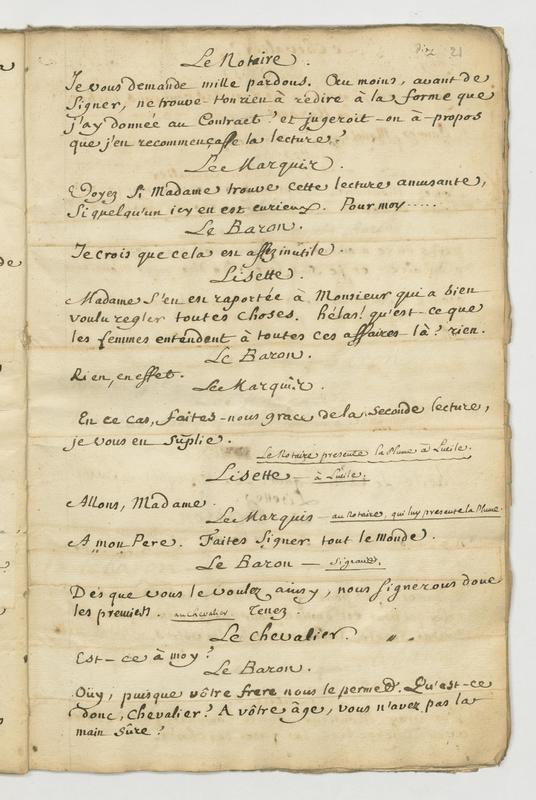 dix 21
Le Notaire.
Je vous demande mille pardons. Au moins, avant de
Signer, ne trouve-t'on rien à redire à la forme que
j'ay donnée au Contract? et jugeroit-on à-propos
que j'en recommençasse la lecture?
Le Marquis.
Voyez si Madame trouve cette lecture amusante,
Si quelqu'un icy en est curieux. Pour moy.....
Le Baron.
Je crois que cela est assez inutile.
Lisette.
Madame s'en est raportée à Monsieur qui a bien
voulu regler toutes choses. hélas! qu'est-ce que
les femmes entendent à toutes ces affaires-là? rien.
Le Baron.
Rien, en effet.
Le Marquis.
En ce cas, faites-nous grace de la seconde lecture,
je vous en suplie.
Le Notaire presente la Plume à Lucile.
Lisette — à Lucile.
Allons, Madame.
Le Marquis — au Notaire, qui luy presente la Plume.
A mon Pere. Faites Signer tout le monde.
Le Baron — signant.
Dès que vous le voulez ainsy, nous signerons donc
les premiers. au Chevalier. Tenez.
Le Chevalier.
Est-ce à moy?
Le Baron.
Oüy, puisque vôtre frere nous le permet. Qu'est-ce
donc, Chevalier? A vôtre âge, vous n'avez pas la
main sûre?